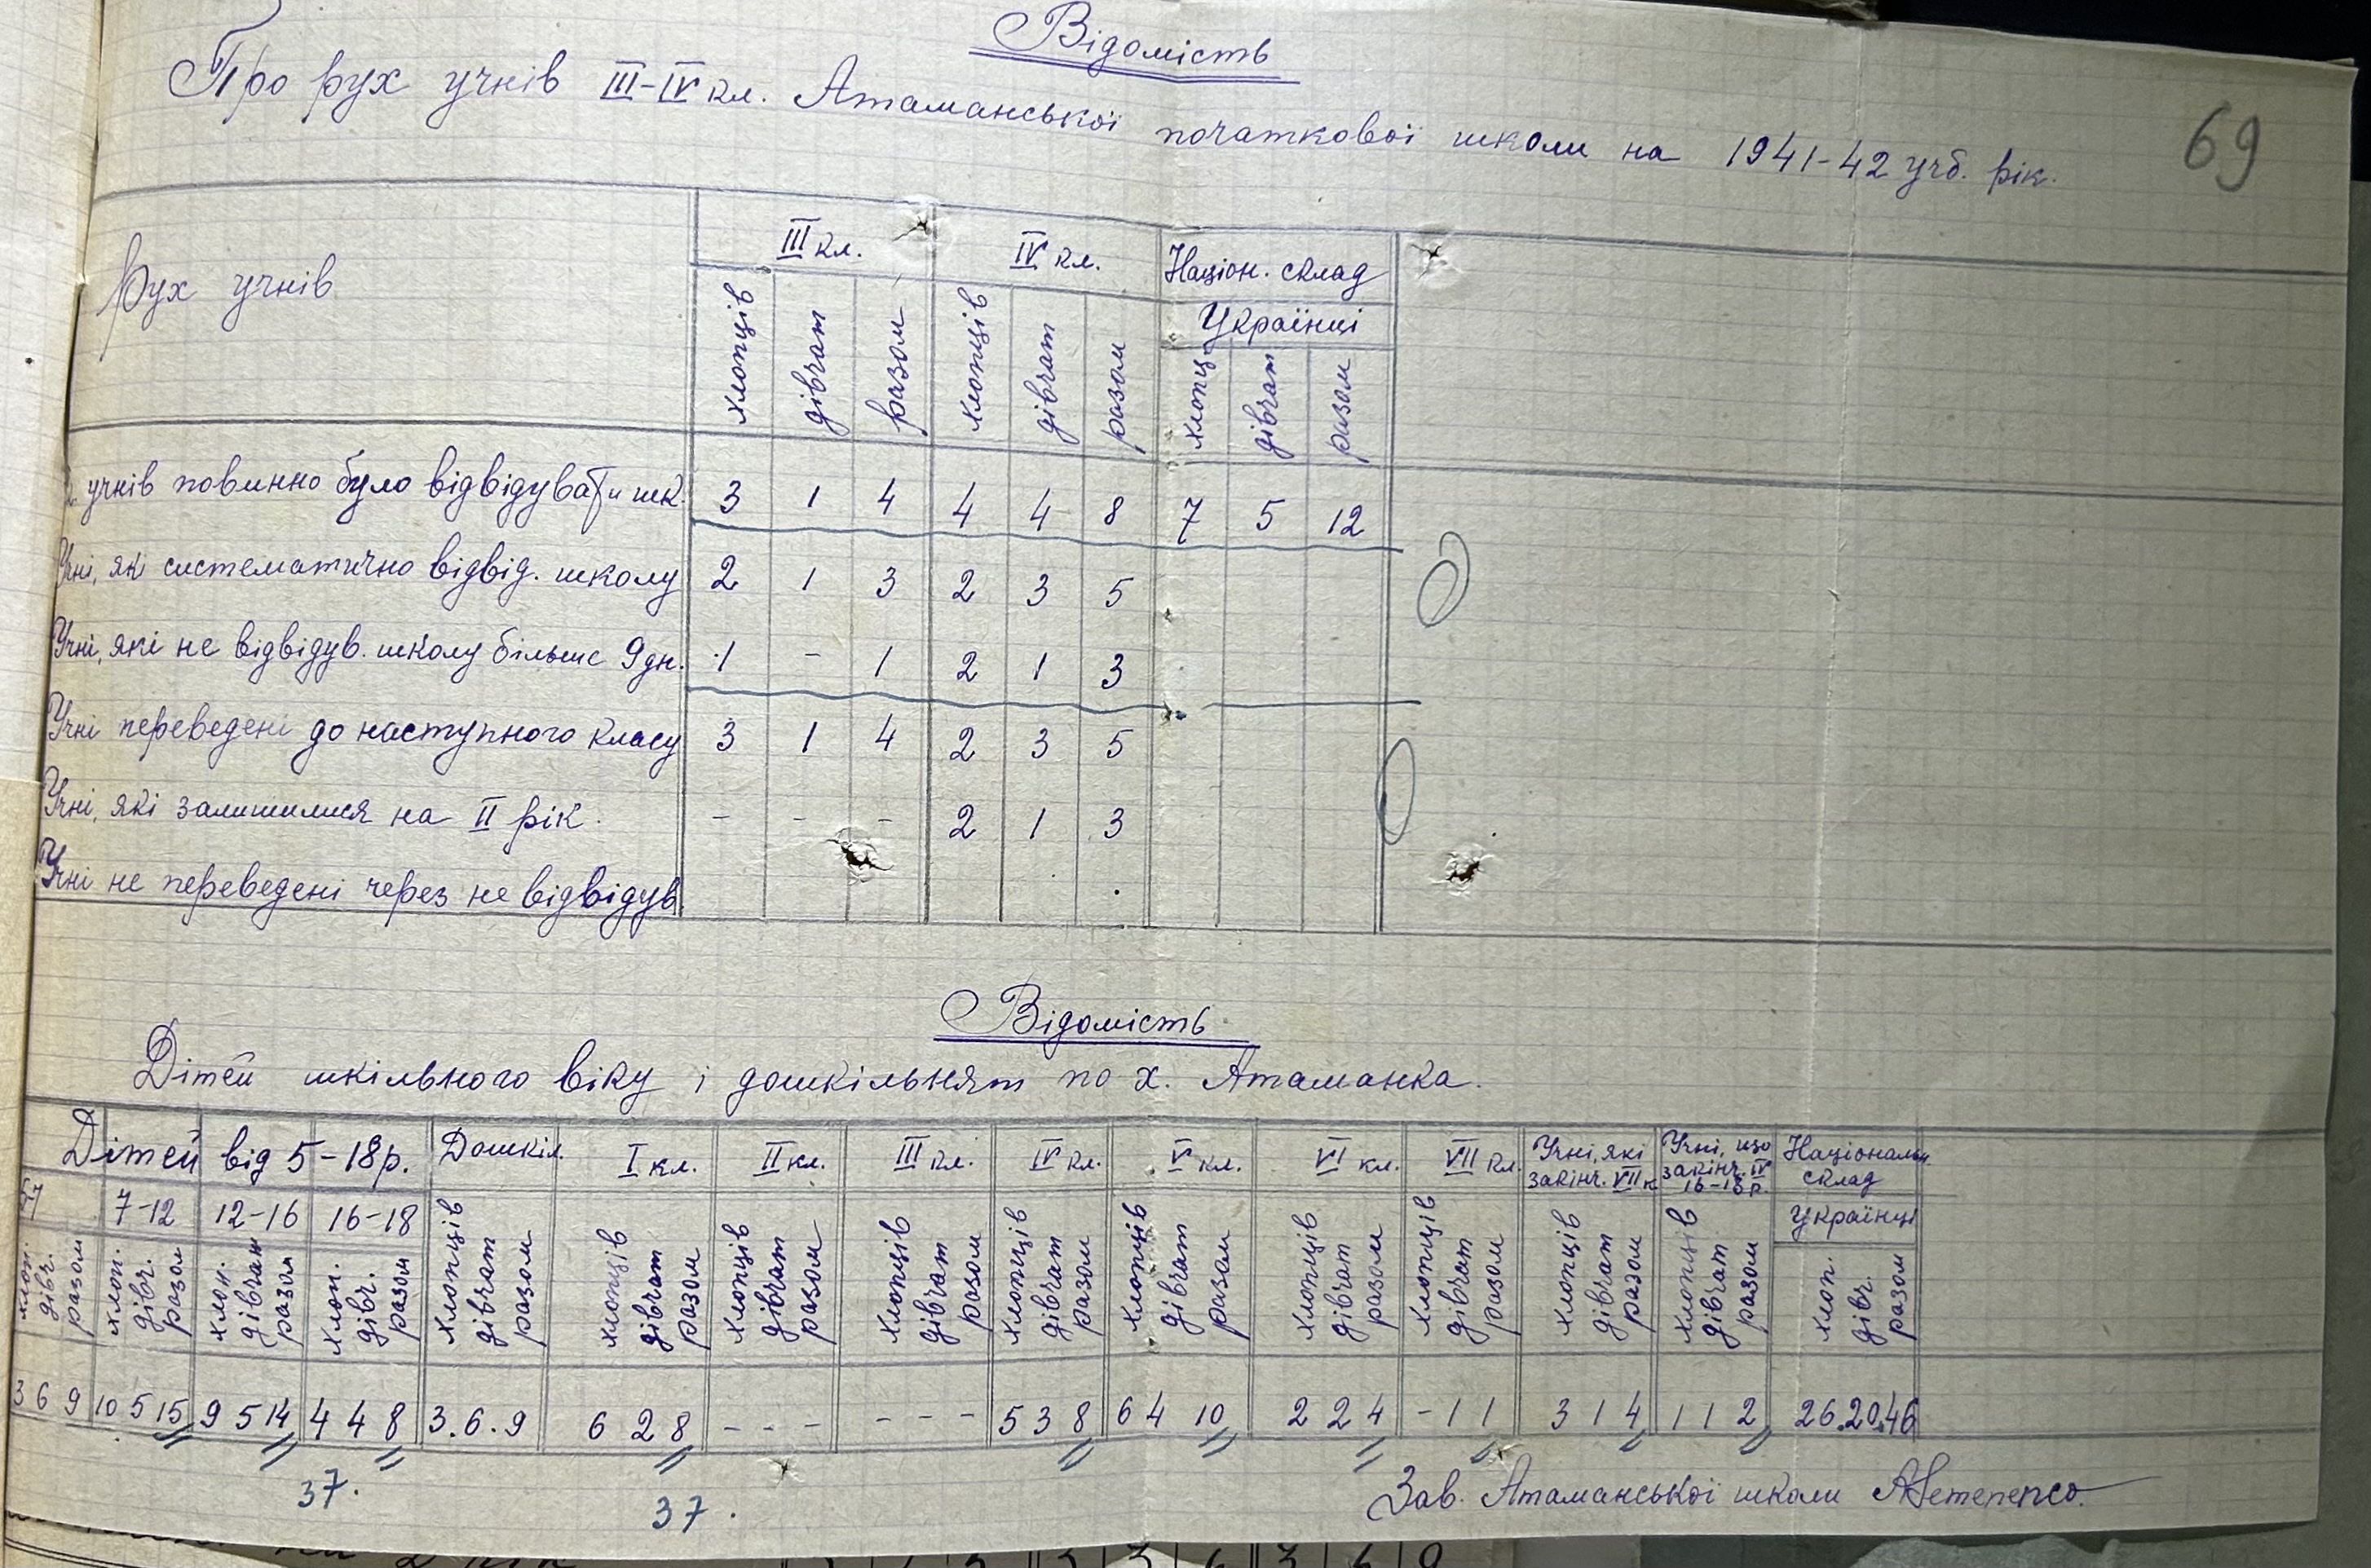 Відомість
Про рух учнів III-IV кл. Атаманської початкової школи на 1941-42 учб. рік.
69
Рух учнів III кл. IV кл. Націон. склад
Українці
хлопців дівчат разом хлопців дівчат разом хлопц. дівчат разом
учнів повинно було відвідувати шк. 3 1 4 4 4 8 7 5 12
Учні, які систематично відвід. школу 2 1 3 2 3 5
Учні, які не відвідув. школу більше 9 дн. 1 - 1 2 1 3
Учні переведені до наступного класу 3 1 4 2 3 5
Учні, які залишилися на II рік. - - - 2 1 3
Учні не переведені через не відвідув.
Відомість
Дітей шкільного віку і дошкільнят по х. Атаманка.
Дітей від 5-18р. Дошкіл. I кл. II кл. III кл. IV кл. V кл. VI кл. VII кл. Учні, які закінч. VII к Учні, що закінч. IV 16-18 р. Національн. склад
7-12 12-16 16-18 Українці
хлоп. дівч. разом хлоп. дівч. разом хлоп. дівчат разом хлоп. дівч. разом хлопців дівчат разом хлопців дівчат разом хлопців дівчат разом хлопців дівчат разом хлопців дівчат разом хлопців дівчат разом хлопців дівчат разом хлопців дівчат разом хлопців дівчат разом хлопців дівчат разом хлоп. дівч. разом
3 6 9 10 5 15 9 5 14 4 4 8 3. 6. 9 6 2 8 - - - - - - 5 3 8 6 4 10 2 2 4 - 1 1 3 1 4 1 1 2 26. 20. 46
37. 37.
Зав. Атаманської школи ASemenenco.